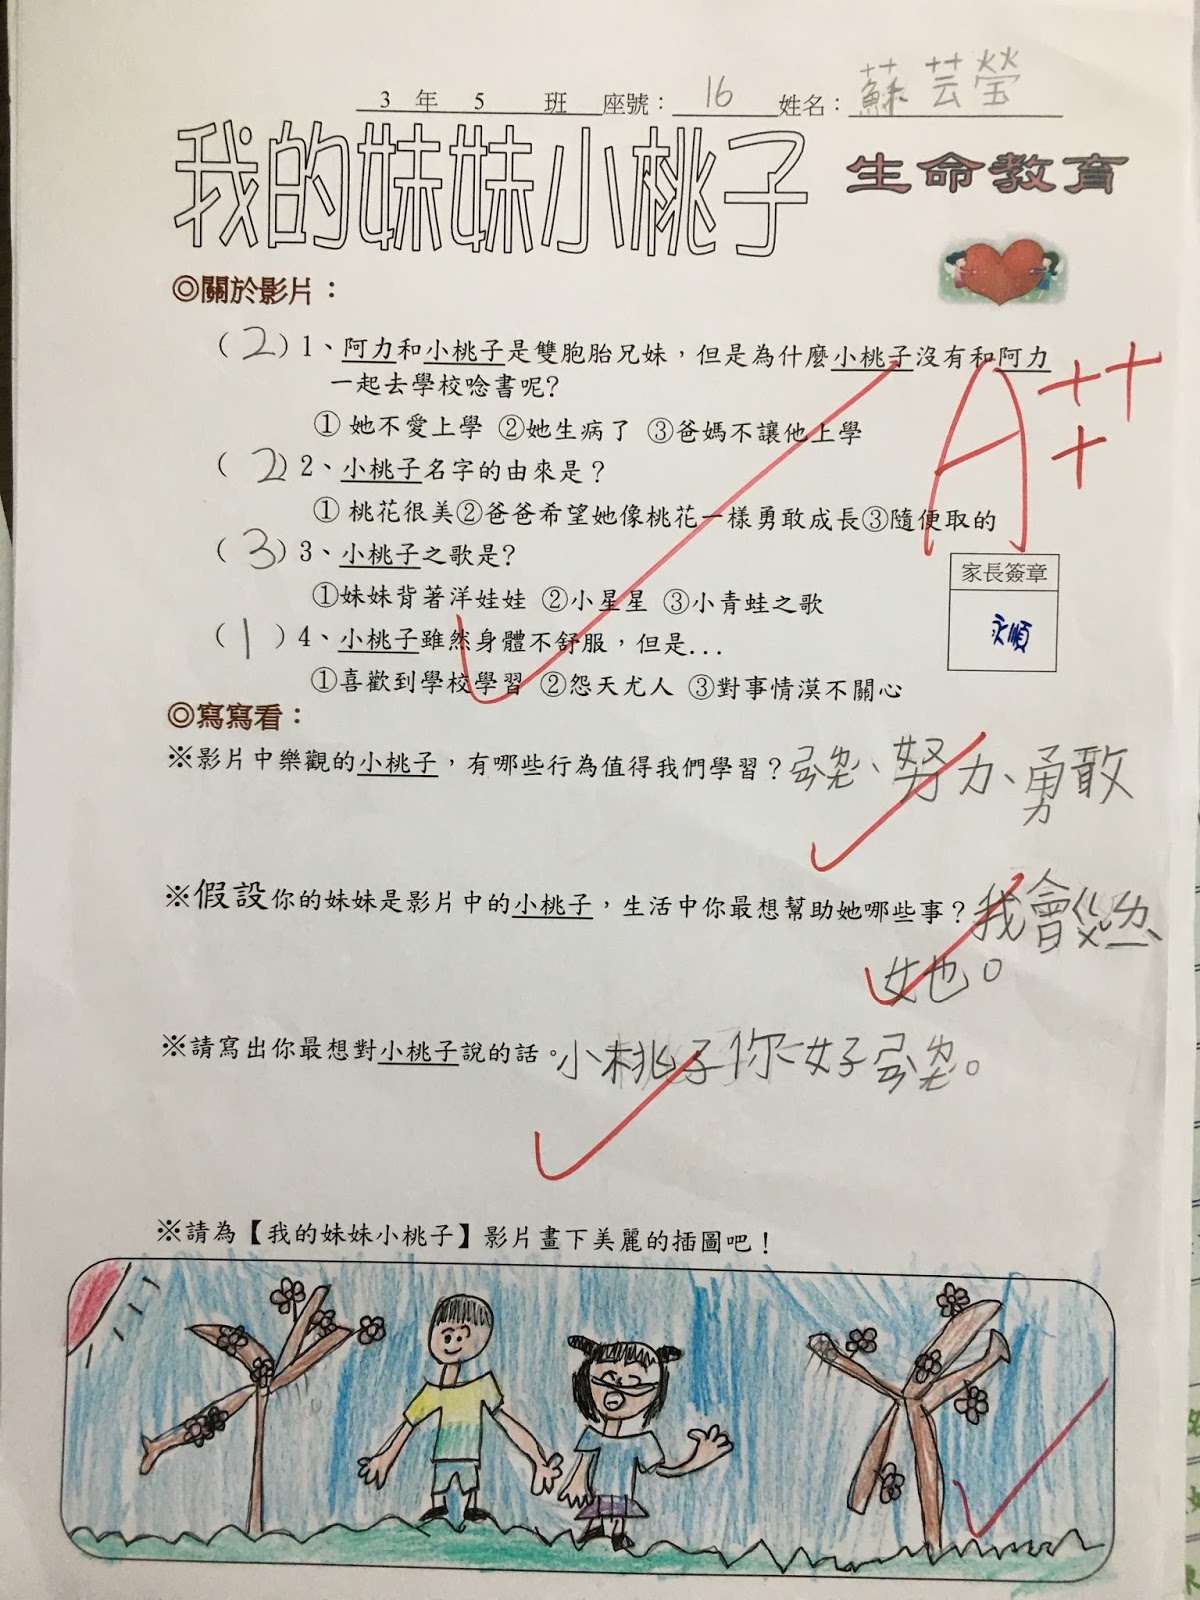 3 年 5 班 座號：16 姓名：蘇芸瑩
我的妹妹小桃子 生命教育
◎關於影片：
（2）1、阿力和小桃子是雙胞胎兄妹，但是為什麼小桃子沒有和阿力
一起去學校唸書呢?
① 她不愛上學 ②她生病了 ③爸媽不讓他上學
A+++
（2）2、小桃子名字的由來是？
① 桃花很美②爸爸希望她像桃花一樣勇敢成長③隨便取的
（3）3、小桃子之歌是?
①妹妹背著洋娃娃 ②小星星 ③小青蛙之歌
家長簽章
永順
（1）4、小桃子雖然身體不舒服，但是...
①喜歡到學校學習 ②怨天尤人 ③對事情漠不關心
◎寫寫看：
※影片中樂觀的小桃子，有哪些行為值得我們學習？、努力、勇敢
※假設你的妹妹是影片中的小桃子，生活中你最想幫助她哪些事？我會
她。
※請寫出你最想對小桃子說的話。小桃子你好。
※請為【我的妹妹小桃子】影片畫下美麗的插圖吧！